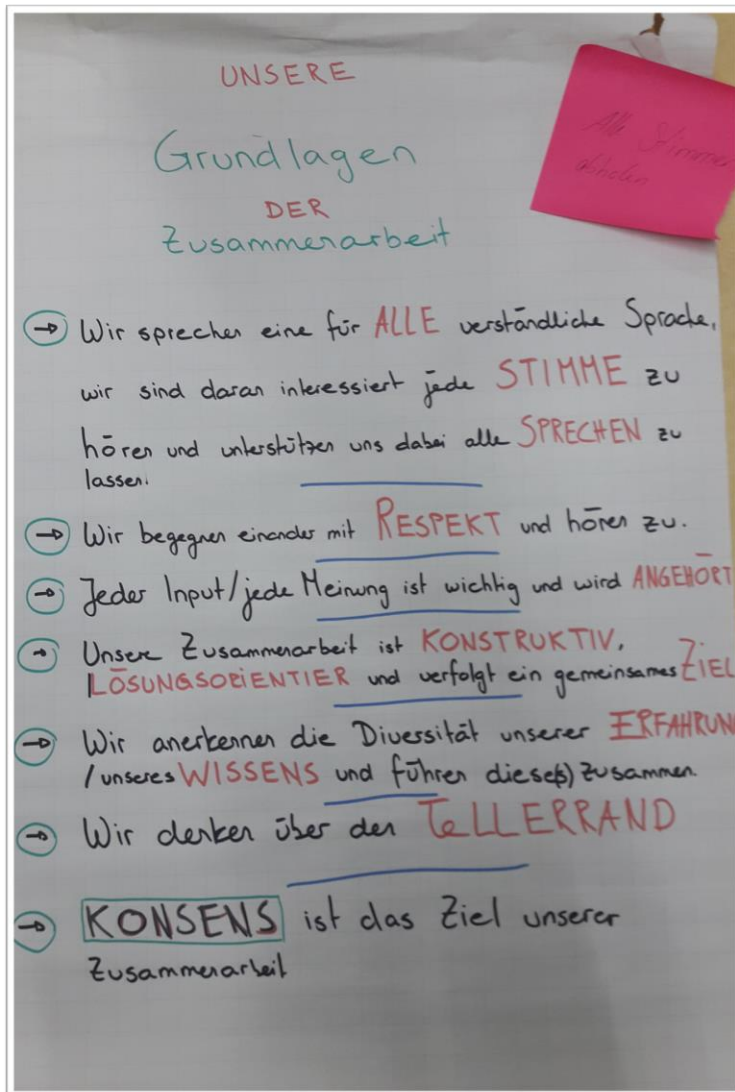 UNSERE
Grundlagen
DER
Zusammenarbeit
Alle Stimmen
abholen
→ Wir sprechen eine für ALLE verständliche Sprache,
wir sind daran interessiert jede STIMME zu
hören und unterstützen uns dabei alle SPRECHEN zu
lassen.
→ Wir begegnen einander mit RESPEKT und hören zu.
→ Jeder Input/jede Meinung ist wichtig und wird ANGEHÖRT
→ Unsere Zusammenarbeit ist KONSTRUKTIV,
LÖSUNGSORIENTIER und verfolgt ein gemeinsames ZIEL
→ Wir anerkennen die Diversität unserer ERFAHRUN
/unseres WISSENS und führen diese(s) zusammen.
→ Wir denken über den TELLERRAND
→ KONSENS ist das Ziel unserer
Zusammenarbeit